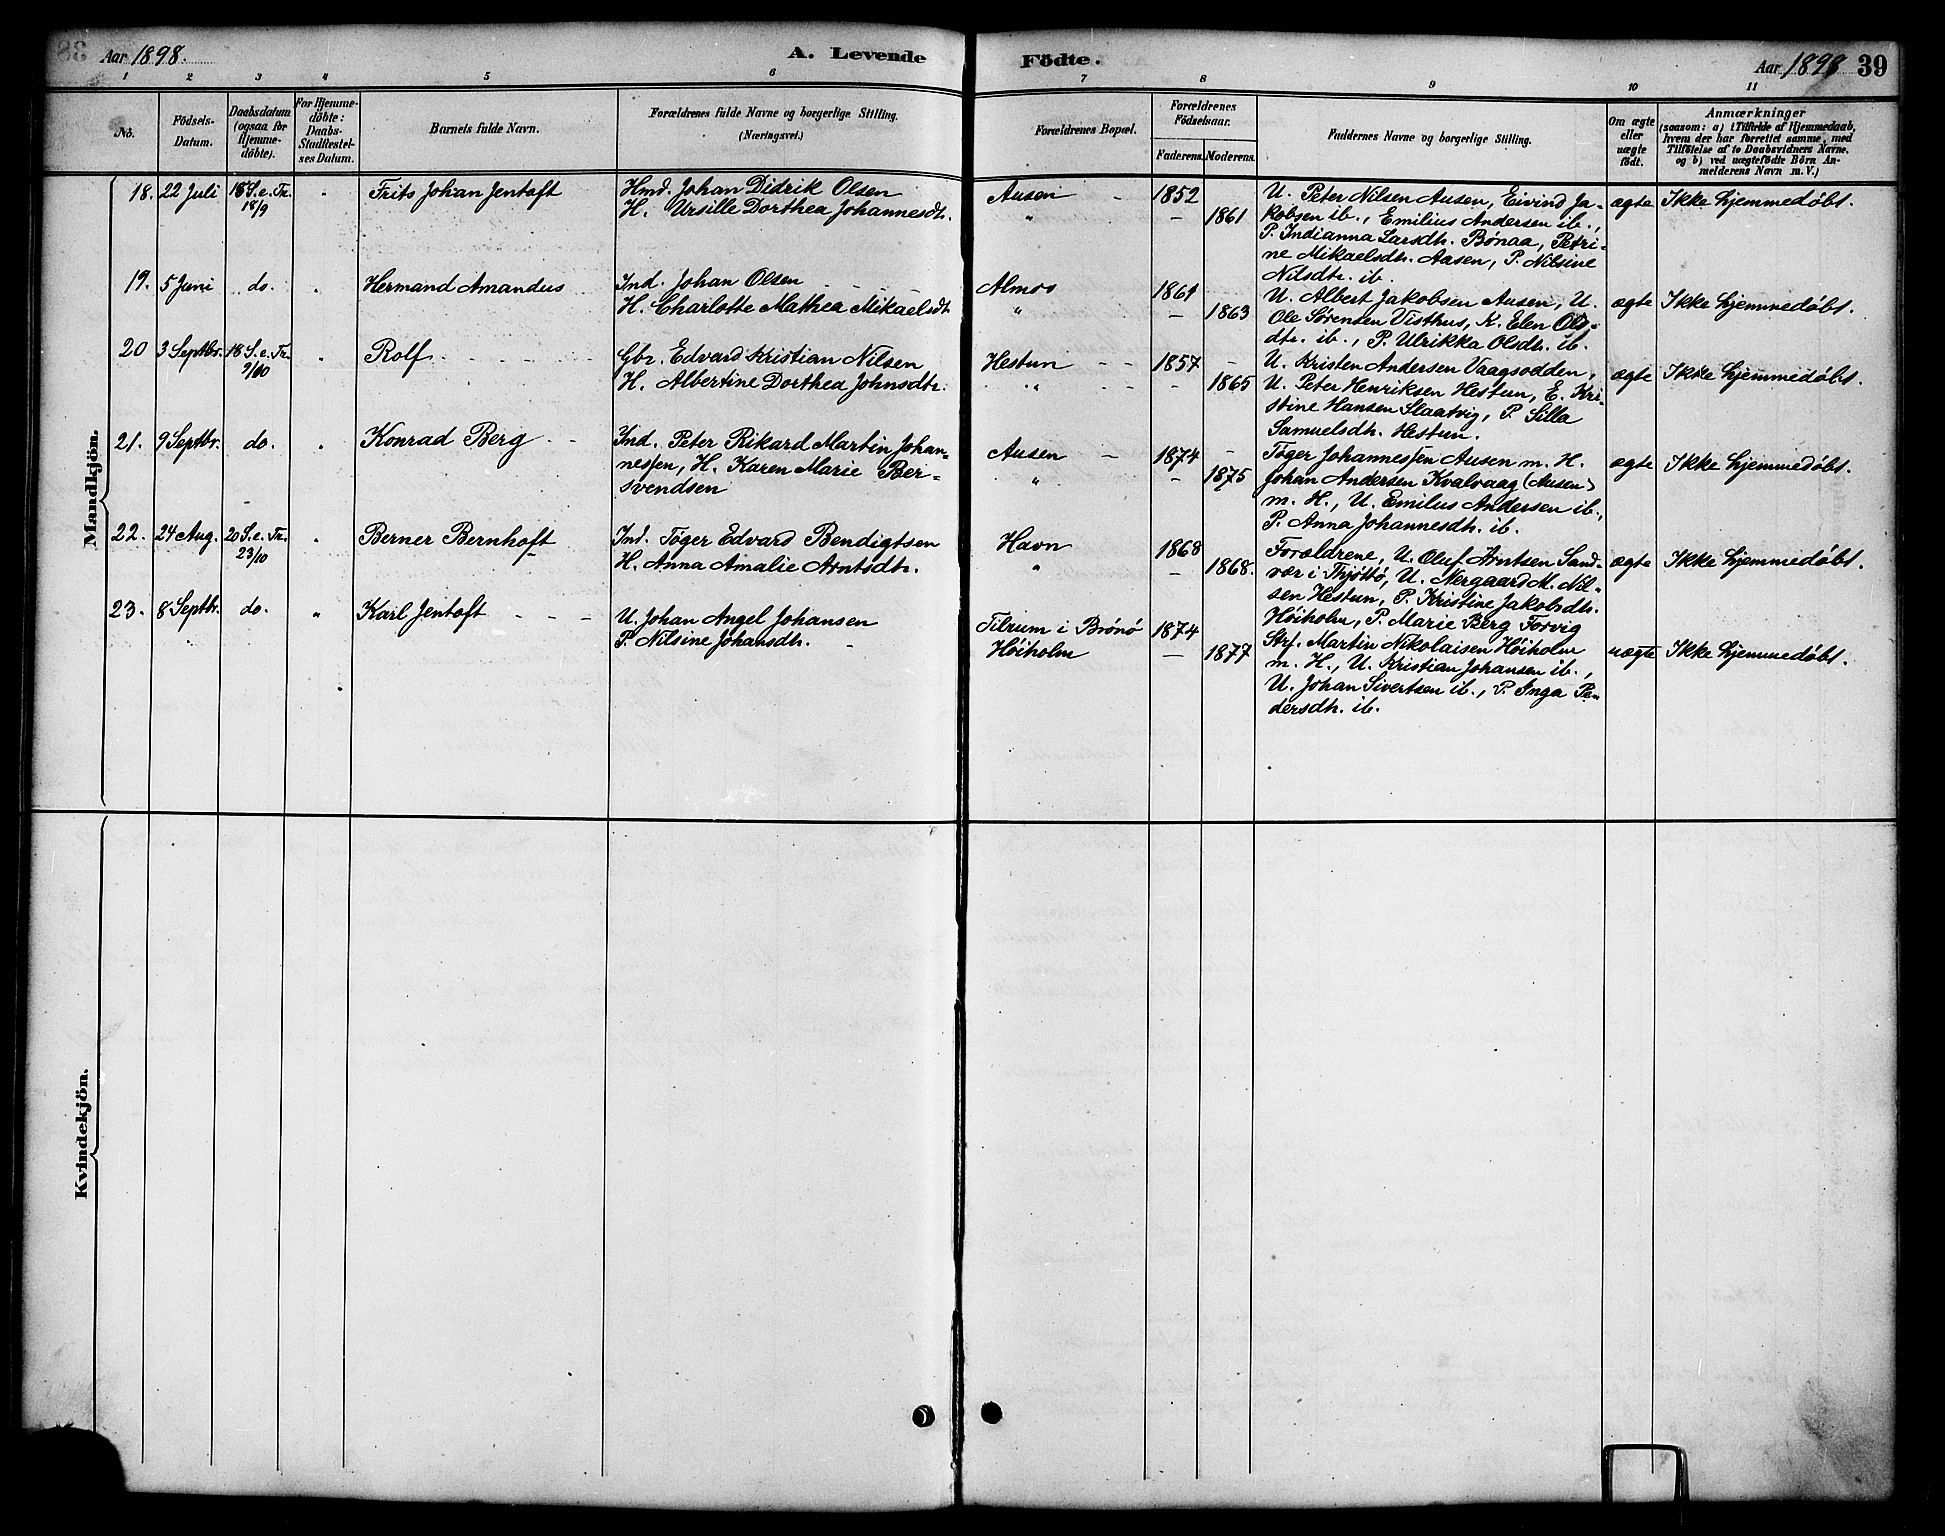 Aar 1898.
A. Levende
Födte.
Aar 1898
39
1
2
3
4
5
6
7
8
9
10
11
No.
Födsels-
Datum.
Daabsdatum
(ogsaa for
Hjemme-
døbte).
For Hjemme-
døbte:
Daabs-
Stadfæstel-
ses Datum.
Barnets fulde Navn.
Forældrenes fulde Navne og borgerlige Stilling.
(Næringsvei.)
Forældrenes Bopæl.
Forældrenes
Fødselsaar.
Faderens.
Moderens.
Faddernes Navne og borgerlige Stilling.
Om ægte
eller
uægte
født.
Anmærkninger
(saasom: a) i Tilfælde af Hjemmedaab,
hvem der har forrettet samme, med
Tilføielse af to Daabsvidners Navne,
og b) ved uægtefødte Börn An-
melderens Navn m. V.)
Mandkjön.
18. 22 Juli 18 S. e. Tr. " Frits Johan Jentoft Hmd. Johan Didrik Olsen Ausen - 1852 U. Peter Nilsen Ausen, Eivind Ja- ægte Ikke hjemmedøbt.
18/9 H. Ursille Dorthea Johannesdt. " - 1861 kobsen ib., Emilius Andersen ib.,
P. Indianna Larsdtr. Bønaa, Petri-
ne Mikaelsdtr. Aasen, P. Nilsine
Nilsdtr. ib.
19. 5 Juni do. " Hermand Amandus Ind. Johan Olsen Almos 1861 U. Albert Jakobsen Ausen, U. ægte Ikke hjemmedøbt.
H. Charlotte Mathea Mikaelsdt. " - 1863 Ole Sørensen Visthus, K. Elen Ols-
dtr. ib., P. Ulrikka Olsdtr. ib.
20 3 Septbr. 18 S. e. Tr. " Rolf Gbr. Edvard Kristian Nilsen Hestun 1857 U. Kristen Andersen Vaagsodden, ægte Ikke hjemmedøbt.
9/10 H. Albertine Dorthea Johnsdtr. " - 1865 U. Peter Henriksen Hestun, E. Kri-
stine Hansen Slaatvig, P. Silla
Samuelsdtr. Hestun.
21. 9 Septbr. do. " Konrad Berg Ind. Peter Rikard Martin Johan- Ausen - 1874 Tøger Johannessen Ausen m. H. ægte Ikke hjemmedøbt.
nessen, H. Karen Marie Ber- " - 1875 Johan Andersen Kvalvaag (Ausen)
svendsen m. H., U. Emilius Andersen ib.,
P. Anna Johannesdtr. ib.
22. 24 Aug. 20 S. e. Tr. " Berner Bernhoft Ind. Tøger Edvard Bendigtsen Havn 1868 Forældrene, U. Oluf Arntsen Sand- ægte Ikke hjemmedøbt.
23/10 H. Anna Amalie Arntsdtr. " - 1868. vær i Thjøttø, U. Nergaard M. Nil-
sen Hestun, P. Kristine Jakobsdtr.
Høiholm, P. Marie Berg Forvig
23. 8 Septbr. do. " Karl Jentoft U. Johan Angel Johansen Tilrum i Brønø 1874 Strf. Martin Nikolaisen Høiholm uægte Ikke hjemmedøbt.
P. Nilsine Johansdtr. Høiholm - 1877 m. H., U. Kristian Johansen ib.,
U. Johan Sivertsen ib., P. Inga Pe-
dersdtr. ib.
Kvindekjön.